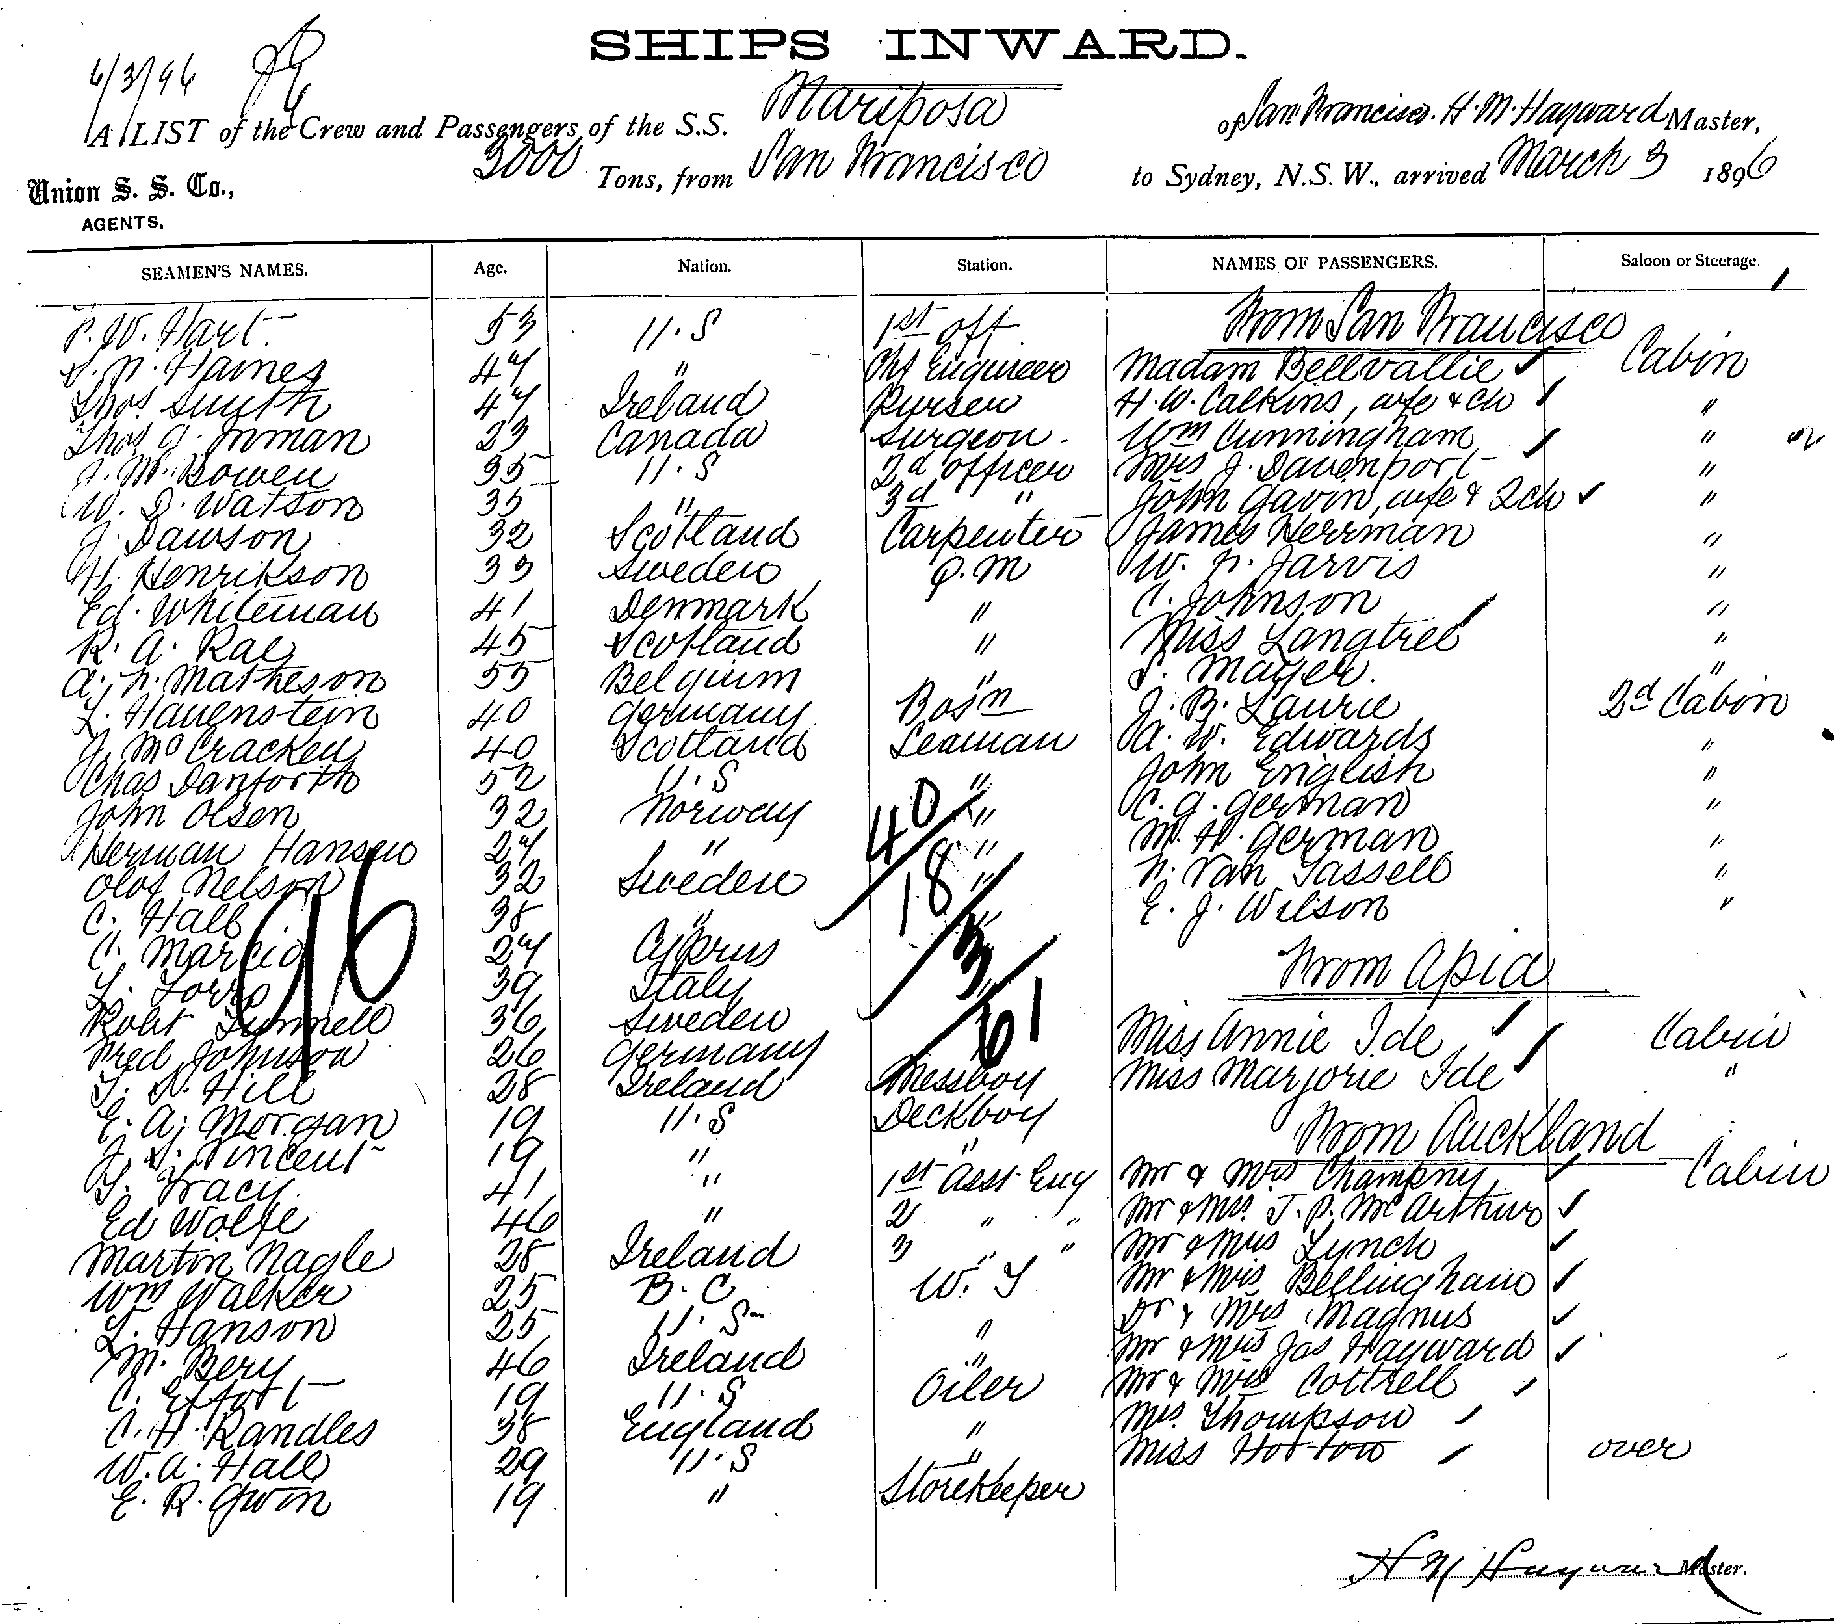 SHIPS INWARD.
6/3/96
A LIST of the Crew and Passengers of the S.S. Mariposa of San Francisco. H. M. Hayward Master,
3000 Tons, from San Francisco to Sydney, N.S.W., arrived March 3 1896
Union S. S. Co.,
AGENTS.
SEAMEN'S NAMES. Age. Nation. Station. NAMES OF PASSENGERS. Saloon or Steerage.
From San Francisco
Hart 53 U.S 1st off
Haines 47 " Chf Engineer Madam Bellvallie Cabin
Thos Smith 47 Ireland Purser H. W. Calkins, wife & ch "
Thos G. Inman 23 Canada Surgeon. Wm Cunningham "
J. M. Bowen 35 U.S 2d officer Mrs J. Davenport "
W. D. Watson 35 " 3d " John Gavin, wife & 2ch "
J. Dawson 32 Scotland Carpenter James Herrman "
H. Henrikson 33 Sweden Q.M W. F. Jarvis "
Ed. Whiteman 41 Denmark " C. Johnson "
R. A. Rae 45 Scotland " Miss Langtree "
A. F. Matheson 55 Belgium " S. Mayer. "
L. Hauenstein 40 Germany Bosn J. B. Laurie 2d Cabin
J. McCracken 40 Scotland Seaman A. W. Edwards "
Chas Danforth 52 U.S " John English "
John Olsen 32 Norway " C. G. German "
Herman Hansen 27 " " M. H. German "
Olof Nelson 32 Sweden " F. Van Tassell "
C. Hall 38 " " E. J. Wilson "
C. Marcia 27 Cyprus
L. Torre 39 Italy From Apia
Robt Tunnell 36 Sweden Miss Annie Ide Cabin
Fred Johnson 26 Germany
T. R. Hill 28 Ireland Messboy Miss Marjorie Ide "
E. A. Morgan 19 U.S Deckboy From Auckland
J. S. Vincent 19 " "
Tracy. 41 " 1st Asst Eng Mr & Mrs Champny Cabin
Ed Wolfe 46 " 2 " " Mr & Mrs. J. P. McArthur
Marton Nagle 28 Ireland 3 " " Mr & Mrs Lynch
Wm Walker 25 B. C W. T Mr & Mrs Bellingham
L. Hanson 25 U.S " Dr & Mrs Magnus
M. Bery 46 Ireland " Mr & Mrs Jas Hayward
C. Effort 19 U.S Oiler Mr & Mrs Cottrell
C. H. Randles 38 England " Mrs. Thompson
W. A. Hall 29 U.S " Miss Horton over
E. R. Gwin 19 " Storekeeper
40
18
3
61
96
H M Hayward Master.